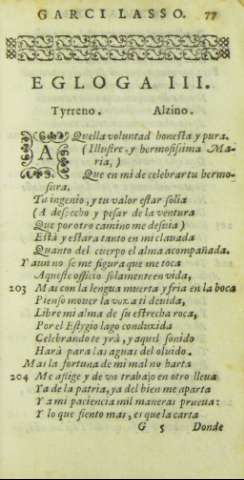 GARCI LASSO. 77
EGLOGA III.
Tyrreno. Alzino.
AQuella voluntad honesta y pura.
(Illustre, y hermosissima Ma-
ria,)
Que en mi de celebrar tu hermo-
sura.
Tu ingenio, y tu valor estar solia
(A despecho y pesar de la ventura
Que por otro camino me desuia)
Està y estara tanto en mi clavada
Quanto del cuerpo el alma acompañada.
Y aun no se me figura que me toca
Aqueste officio solamente en vida,
203 Mas con la lengua muerta y fria en la boca
Pienso mover la voz a ti deuida,
Libre mi alma de su estrecha roca,
Por el Estygio lago conduzida
Celebrandote yrà, y aquel sonido
Harà parar las aguas del oluido.
Mas la fortuna de mi mal no harta
204 Me aflige y de vn trabajo en otro lleua
Ya de la patria, ya del bien me aparta
Y a mi paciencia mil maneras prueua:
Y lo que siento mas, es que la carta
G 5 Donde